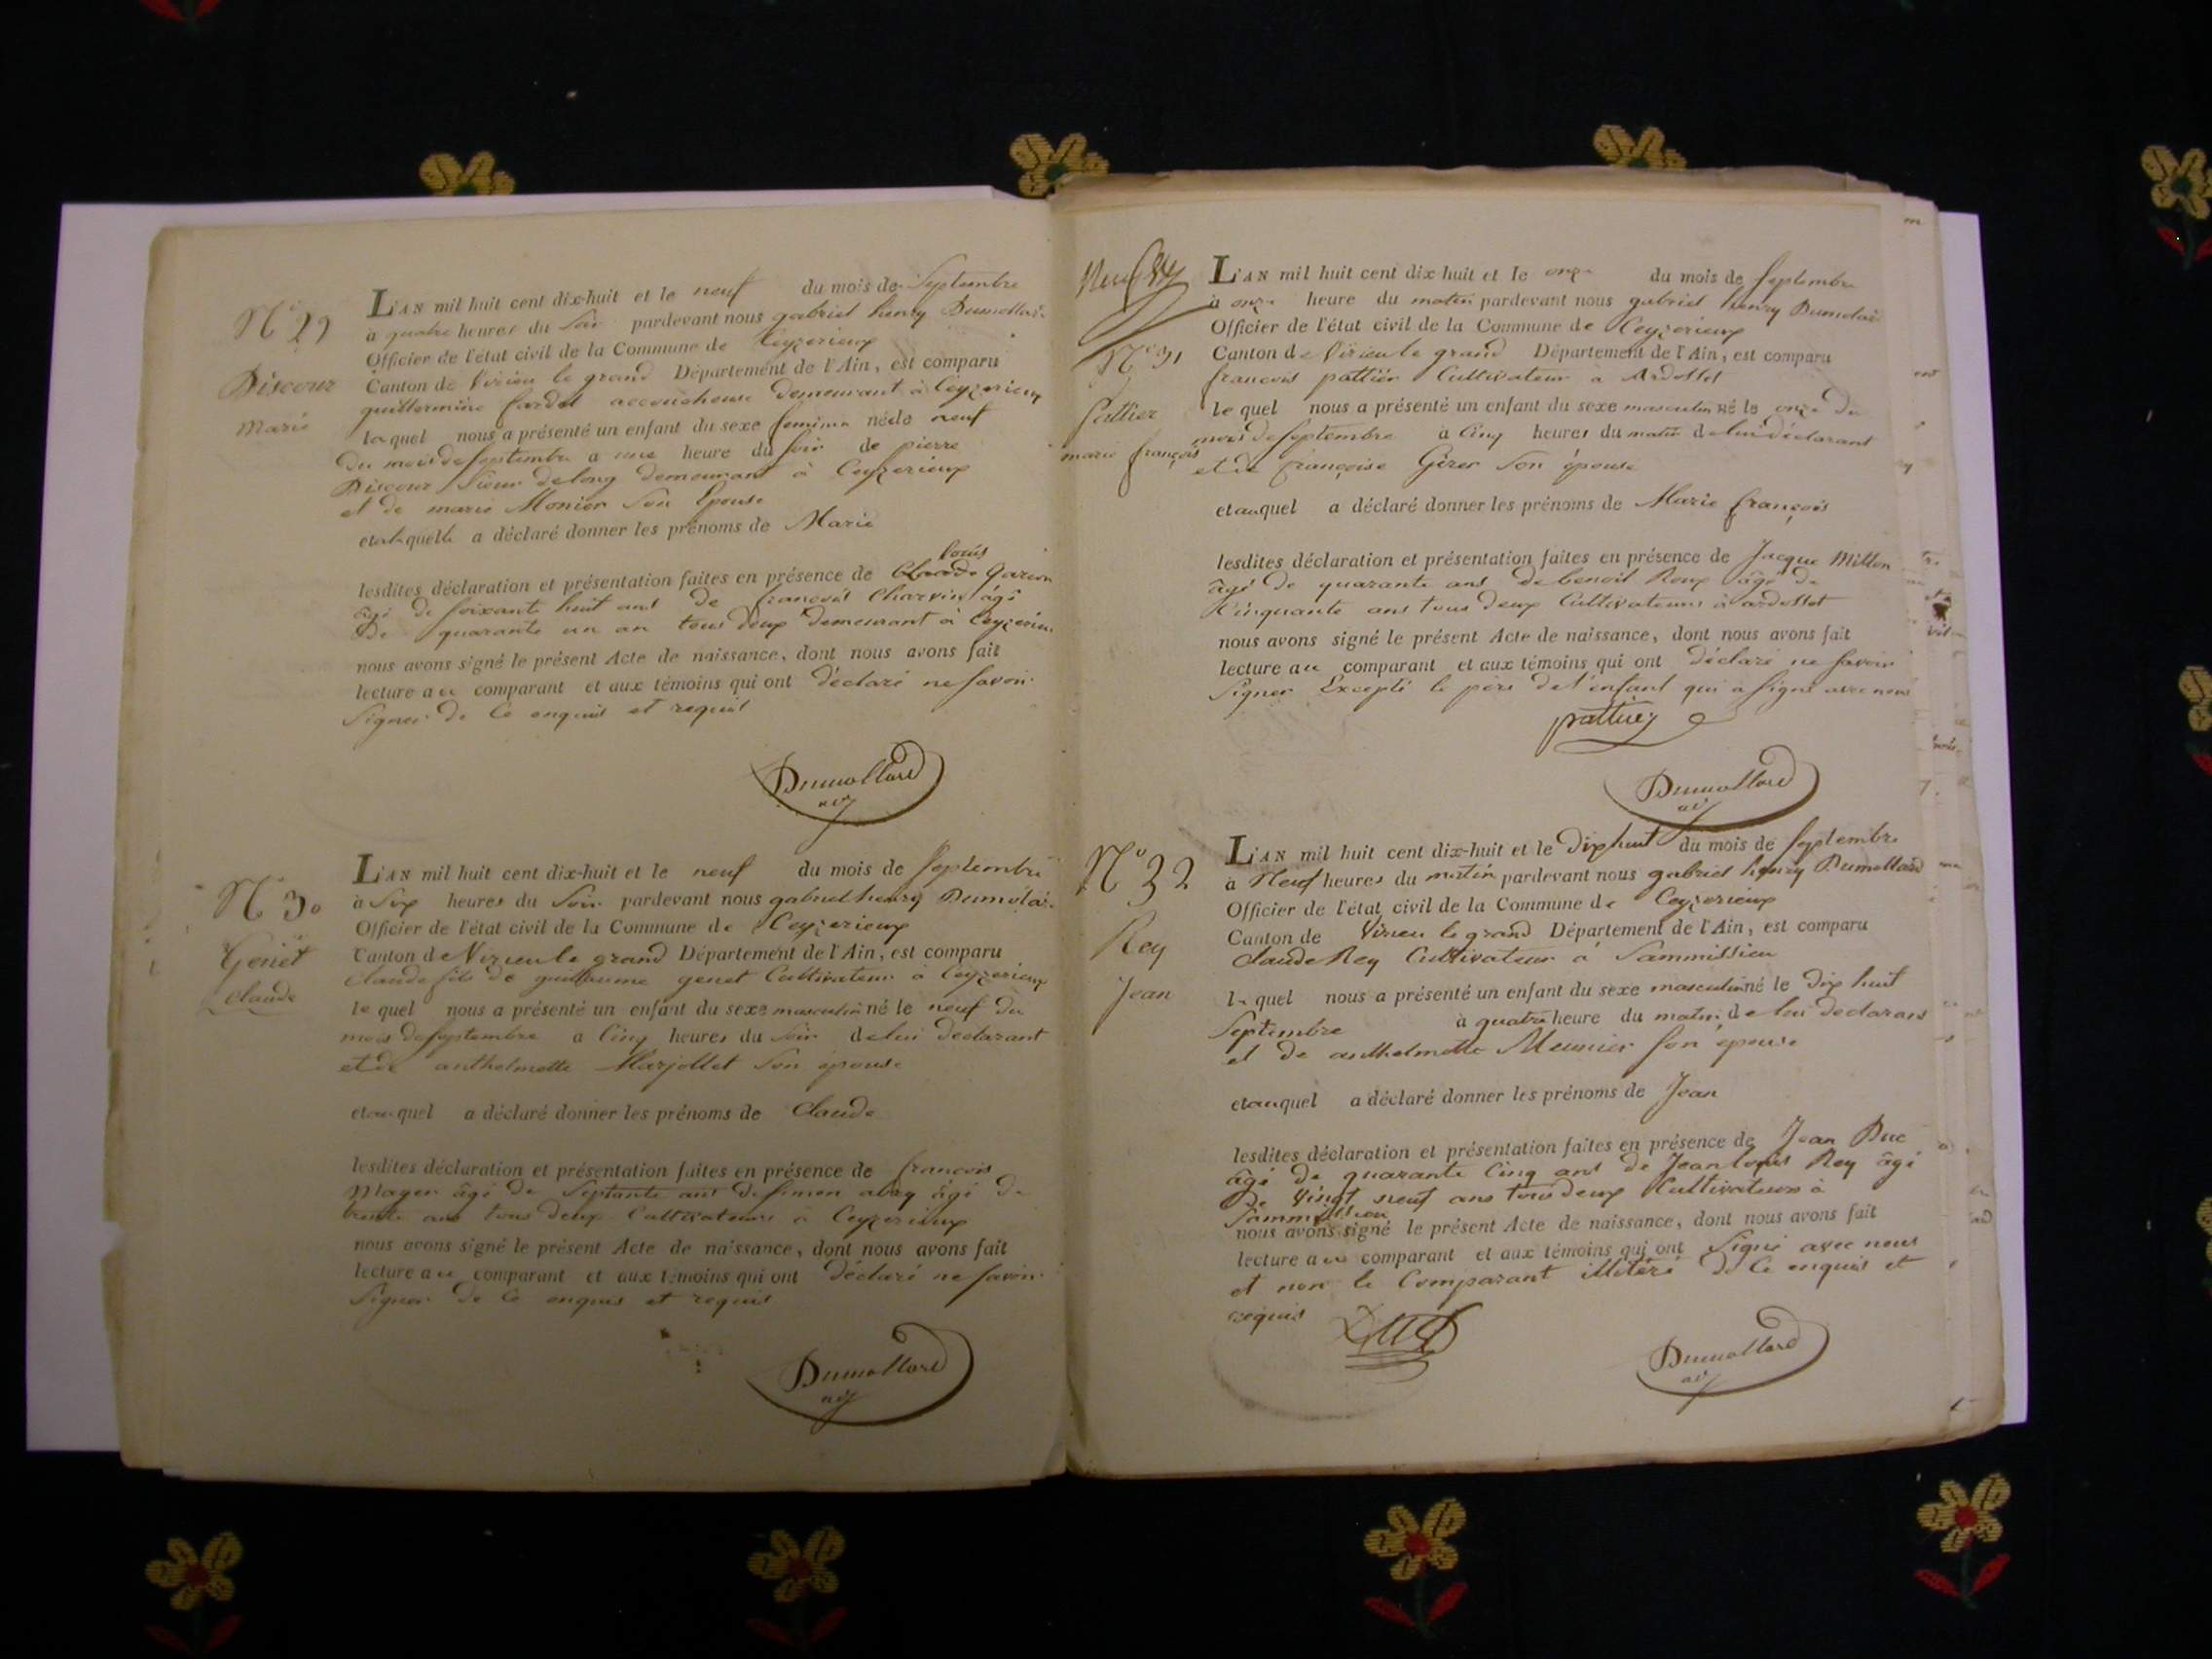 N° 29
Discour
Marie
L'AN mil huit cent dix-huit et le neuf du mois de Septembre
a quatre heures du soir pardevant nous gabriel henry Dumollar
Officier de l'état civil de la Commune de Ceyzerieux
Canton de Virieu le grand Département de l'Ain, est comparu
guillermine Cardel accoucheuse demeurant à Ceyzerieux
laquel nous a présenté un enfant du sexe feminin né le neuf
du mois de septembre a une heure du soir de pierre
Discour sieur delong demeurant à Ceyzerieux
et de marie Monier son Epouse
et a laquelle a déclaré donner les prénoms de Marie
louis
lesdites déclaration et présentation faites en présence de Claude garion
âgé de soixante huit ans de francois Charvin âgé
De quarante un an tous deux demeurant à Ceyzerieu
nous avons signé le présent Acte de naissance, dont nous avons fait
lecture au comparant et aux témoins qui ont déclaré ne savoir
signer de ce enquis et requis
Dumollard
adj
N° 30
Genet
Claude
L'AN mil huit cent dix-huit et le neuf du mois de septembre
à six heures du soir pardevant nous gabriel henry Dumolar
Officier de l'état civil de la Commune de Ceyzerieux
Canton de Virieu le grand Département de l'Ain, est comparu
Claude fils de guillaume genet Cultivateur à Ceyzerieux
lequel nous a présenté un enfant du sexe masculin né le neuf du
mois de septembre a cinq heures du soir de lui declarant
et de anthelmette Marjollet son épouse
et auquel a déclaré donner les prénoms de Claude
lesdites déclaration et présentation faites en présence de francois
Mager âgé de Septante ans de simon abry âgé de
trente ans tous deux Cultivateurs à Ceyzerieux
nous avons signé le présent Acte de naissance, dont nous avons fait
lecture au comparant et aux témoins qui ont déclaré ne savoir
signer de ce enquis et requis
Dumollard
adj
N° 31
Pattier
marie françois
L'AN mil huit cent dix-huit et le onze du mois de septembre
à onze heure du matin pardevant nous gabriel henry Dumolar
Officier de l'état civil de la Commune de Ceyzerieux
Canton de Virieu le grand Département de l'Ain, est comparu
françois pattier Cultivateur à Ardosset
lequel nous a présenté un enfant du sexe masculin né le onze du
mois de septembre à cinq heures du matin de lui déclarant
et de françoise Girer son épouse
et auquel a déclaré donner les prénoms de Marie françois
lesdites déclaration et présentation faites en présence de Jacque Millon
âgé de quarante ans de benoit Roux âgé de
Cinquante ans tous deux Cultivateurs à ardosset
nous avons signé le présent Acte de naissance, dont nous avons fait
lecture au comparant et aux témoins qui ont déclaré ne savoir
signer Excepté le père de l'enfant qui a signé avec nous
pattiez
Dumollard
adj
N° 32
Rey
Jean
L'AN mil huit cent dix-huit et le dix huit du mois de septembre
à Neuf heures du matin pardevant nous gabriel henry Dumollard
Officier de l'état civil de la Commune de Ceyzerieux
Canton de Virieu le grand Département de l'Ain, est comparu
Claude Rey Cultivateur à Sammissieu
lequel nous a présenté un enfant du sexe masculin né le dix huit
Septembre à quatre heure du matin de lui declarans
et de anthelmette Meunier son épouse
et auquel a déclaré donner les prénoms de Jean
lesdites déclaration et présentation faites en présence de Jean Duc
âgé de quarante cinq ans de Jean louis Rey âgé
De Vingt neuf ans tous deux Cultivateurs à
Sammissieu
nous avons signé le présent Acte de naissance, dont nous avons fait
lecture au comparant et aux témoins qui ont signé avec nous
et non le Comparant illitéré de ce enquis et
requis
Dumollard
adj